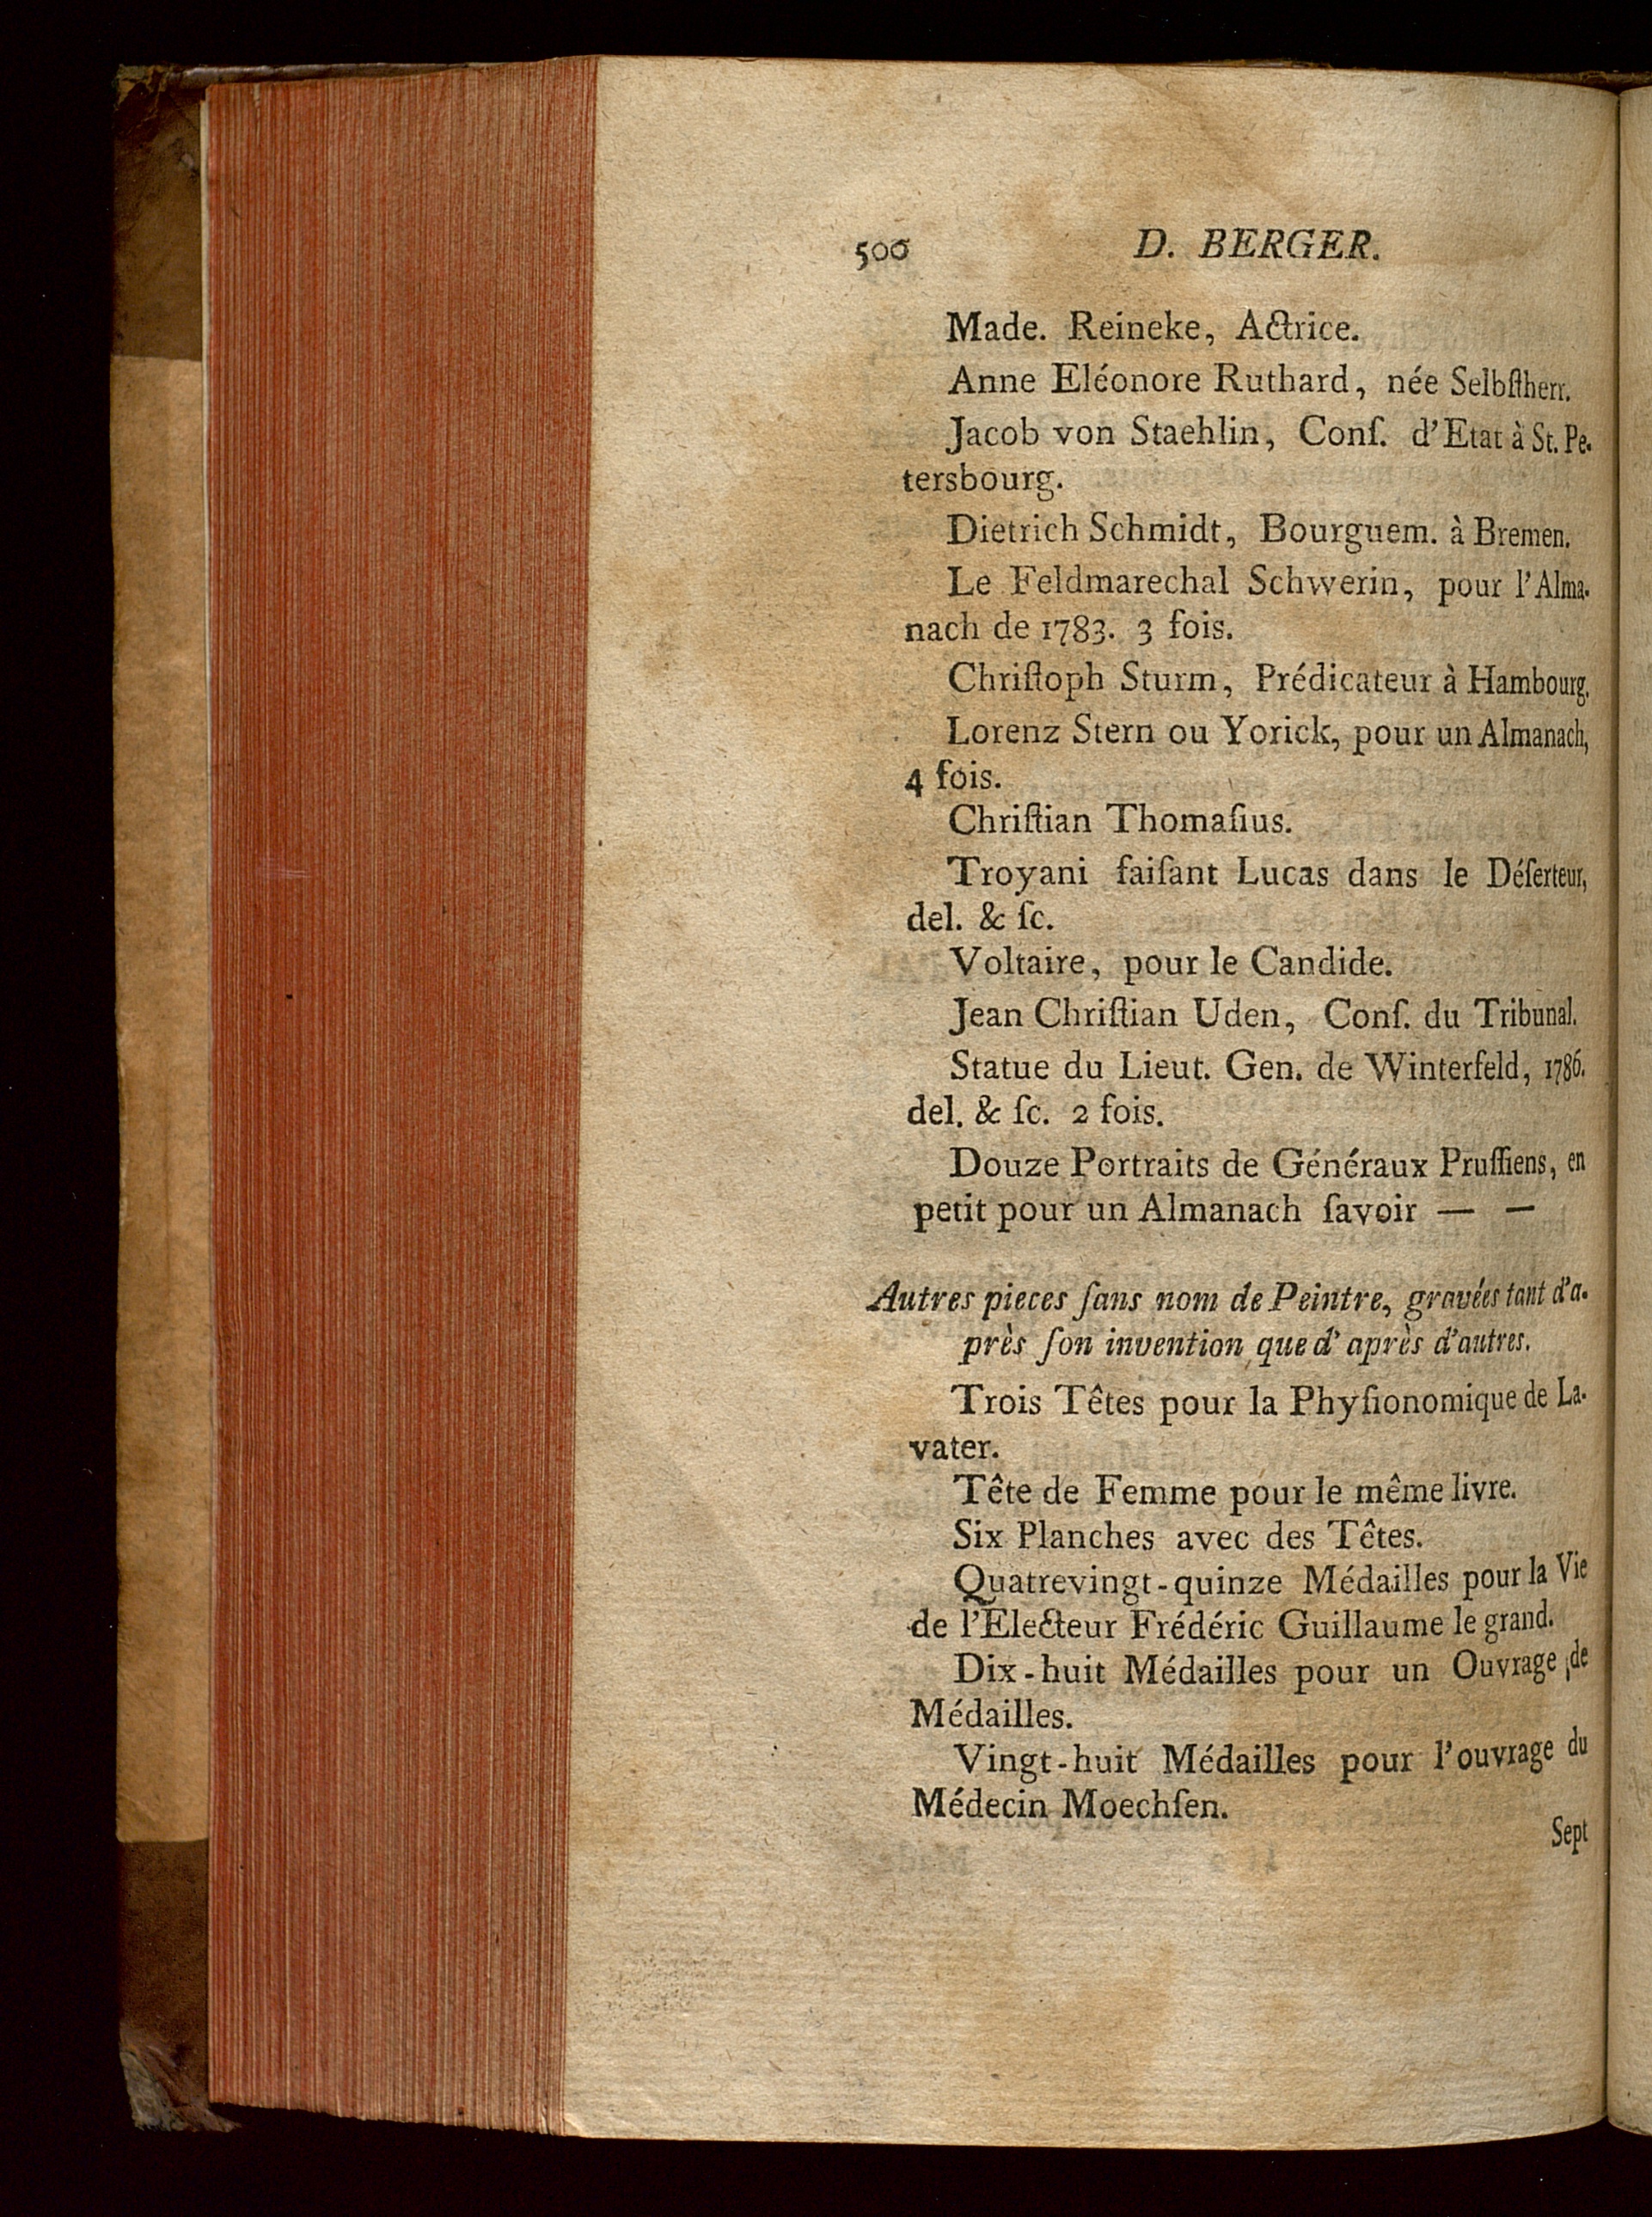 500 D. BERGER.
Made. Reineke, Actrice.
Anne Eléonore Ruthard, née Selbſtherr.
Jacob von Staehlin, Conſ. d'Etat à St. Pe-
tersbourg.
Dietrich Schmidt, Bourguem. à Bremen.
Le Feldmarechal Schwerin, pour l'Alma-
nach de 1783. 3 fois.
Chriſtoph Sturm, Prédicateur à Hambourg.
Lorenz Stern ou Yorick, pour un Almanach,
4 fois.
Chriſtian Thomaſius.
Troyani faiſant Lucas dans le Déſerteur,
del. & ſc.
Voltaire, pour le Candide.
Jean Chriſtian Uden, Conſ. du Tribunal.
Statue du Lieut. Gen. de Winterfeld, 1786.
del. & ſc. 2 fois.
Douze Portraits de Généraux Pruſſiens, en
petit pour un Almanach ſavoir — —
Autres pieces ſans nom de Peintre, gravées tant d'a-
près ſon invention que d'après d'autres.
Trois Têtes pour la Phyſionomique de La-
vater.
Tête de Femme pour le même livre.
Six Planches avec des Têtes.
Quatrevingt-quinze Médailles pour la Vie
de l'Electeur Frédéric Guillaume le grand.
Dix-huit Médailles pour un Ouvrage de
Médailles.
Vingt-huit Médailles pour l'ouvrage du
Médecin Moechſen.
Sept